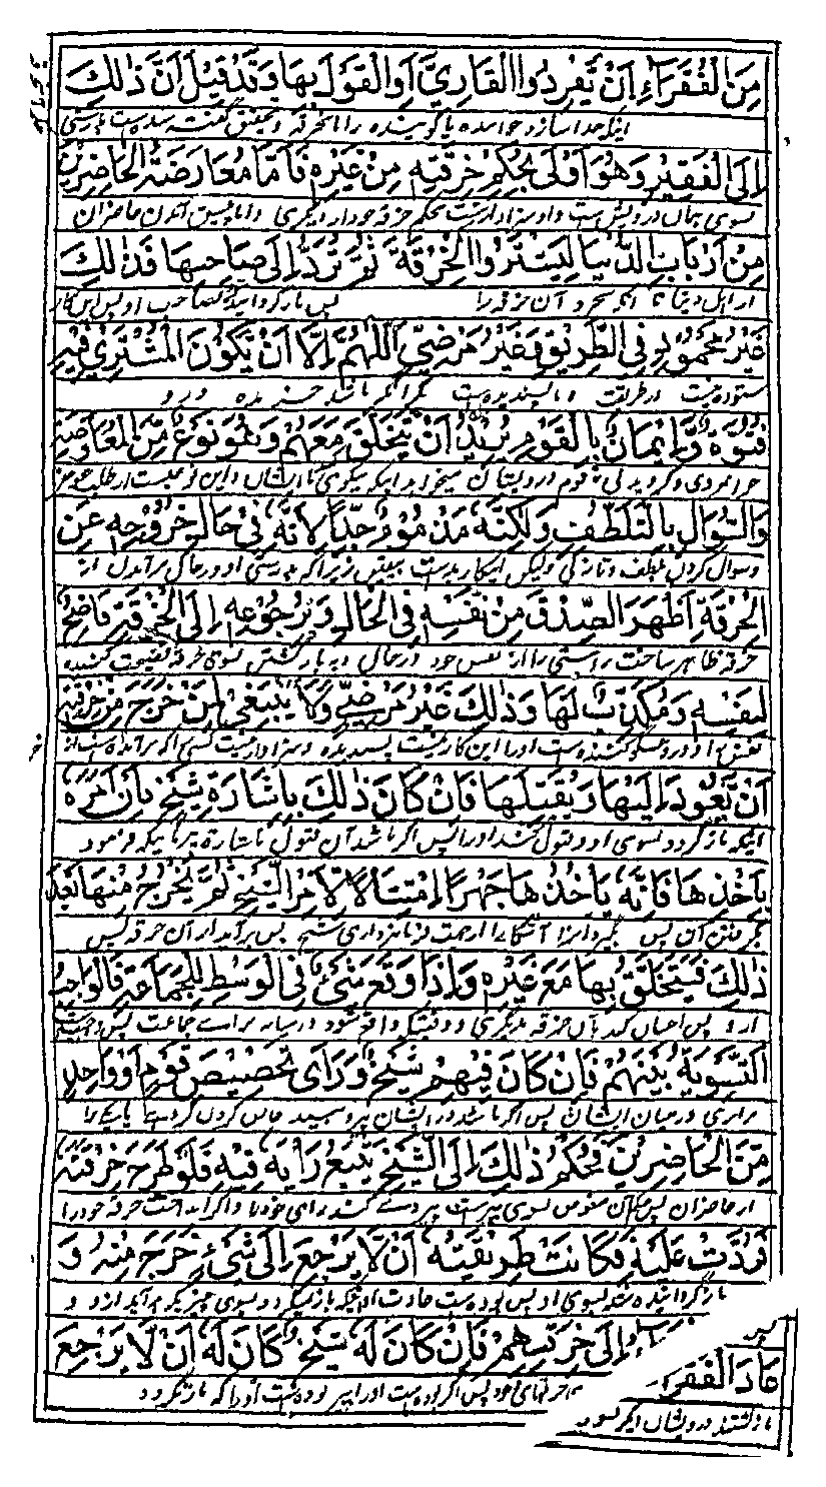 مِنَ الْفُقَرَاءِ اَنْ يَفْرِدُوا الْقَارِيَّ اَوِ الْقَوَّلَ بِهَا وَقَدْ قِيْلَ اَنَّ ذٰلِكَ
اینکه جدا سازد خواننده یا گوینده را بخرقه و بتحقیق گفته شده است بدرستی
اِلَى الْفَقِيْرِ وَهُوَ اَوْلٰى بِحُكْمِ خِرْقَتِهٖ مِنْ غَيْرِهٖ فَاَمَّا مُعَارَضَةُ الْحَاضِرِيْنَ
بسوی همان درویش است و او سزاوارترست بحکم خرقه خود از دیگری حاضران
مِنْ اَرْبَابِ الدُّنْيَا لِيَشْتَرُوا الْخِرْقَةَ ثُمَّ تُرَدُّ اِلٰى صَاحِبِهَا فَذٰلِكَ
از اهل دنیا تا آن خرقه را پس باز گردانیده صاحب او پس این کار
غَيْرُ مَحْمُوْدٍ فِى الطَّرِيْقِ وَغَيْرُ مَرْضِيٍّ اَللّٰهُمَّ اِلَّا اَنْ يَّكُوْنَ الْمُشْتَرِيْ فِيْهِ
ستوده نیست در طریقت و ناپسندیده است مگر آنکه باشد خرنده در او
فُتُوَّةٌ وَاِيْمَانٌ بِالْقَوْمِ يُرِيْدُ اَنْ يَّتَخَلَّقَ مَعَهُمْ وَهُوَ نَوْعٌ مِّنَ الْمُعَاوَضَةِ
جوانمردی و گرویدنی بقوم درویشان میخواهد اینکه نیکوی با ایشان و این نوعیست از طلب عوض
وَالسُّوَالِ بِالتَّلَطُّفِ وَلٰكِنَّهٗ مَذْمُوْمٌ جِدًّا لِاَنَّهٗ فِيْ حَالِ خُرُوْجِهٖ عَنِ
وسوال کردن بلطف و نازکی ولیکن اینکار بدست بیقین زیراکه بدرستی او در حال برآمدن از
الْخِرْقَةِ اَظْهَرَ الصِّدْقَ مِنْ نَفْسِهٖ فِى الْحَالِ وَبِرُجُوْعِهٖ اِلَى الْخِرْقَةِ فَاضِحٌ
خرقه ظاهر ساخت راستی را از نفس خود در حال و به بازگشتن بسوی خرقه فضیحت کننده
لِنَفْسِهٖ وَمُكَذِّبٌ لَهَا وَذٰلِكَ غَيْرُ مَرْضِيٍّ وَلَا يَنْبَغِيْ لِمَنْ خَرَجَ مِنْ خِرْقَتِهٖ
نفس او کننده است او را این کار نیست پسندیده و سزاوار نیست کسی را که برآمده است از
اَنْ يَّعُوْدَ اِلَيْهَا وَيُقَبِّلَهَا فَاِنْ كَانَ ذٰلِكَ بِاِشَارَةِ شَيْخٍ بِاَنْ اَمَرَهٗ
اینکه باز گردد بسوی او و قبول کند او را پس اگر باشد آن قبول باشارة پیر باینکه فرمود
بِاَخْذِهَا فَاِنَّهٗ يَاْخُذُهَا جَهْرًا اِمْتِثَالًا لِاَمْرِ الشَّيْخِ ثُمَّ يَخْرُجُ مِنْهَا بَعْدَ
بگرفتن آن پس بگیرد آشکارا از جهت فرمانبرداری شیخ پس برآمد از آن خرقه پس
ذٰلِكَ فَيَتَخَلَّقُ بِهَا مَعَ غَيْرِهٖ وَاِذَا وَقَعَ شَيْءٌ فِى الْوَسَطِ لِلْجَمَاعَةِ فَالْوَاجِبُ
ازو پس احسان کند بآن خرقه بدیگری و وقتیکه واقع شود درمیانه برای جماعت پس واجبست
اَلتَّسْوِيَةُ بَيْنَهُمْ فَاِنْ كَانَ فِيْهِمْ شَيْخٌ وَرَاٰى تَخْصِيْصَ قَوْمٍ اَوْ وَاحِدٍ
برابری درمیان ایشان پس اگر باشد در ایشان پیر و ببیند خاص کردن گروهی یا یکی را
مِّنَ الْحَاضِرِيْنَ فَحُكْمُ ذٰلِكَ اِلَى الشَّيْخِ يَتَّبِعُ رَاْيَهٗ فِيْهِ فَلَوْ طَرَحَ خِرْقَتَهٗ
از حاضران پس حکم آن مفوض بسوی پیرست پیروی کنند رای او را و اگر انداخت خرقه خود را
فَرُدَّتْ عَلَيْهِ فَكَانَتْ طَرِيْقَتُهٗ اَنْ لَّا يَرْجِعَ اِلٰى شَيْءٍ خَرَجَ مِنْهُ وَ
باز گردانیده شد بسوی او پس بوده است عادت او اینکه باز نمیگردد بسوی چیزیکه برآید ازو و
عَادَ الْفُقَرَاءُ اِلٰى خِرْقَتِهِمْ فَاِنْ كَانَ لَهٗ شَيْخٌ كَانَ لَهٗ اَنْ لَّا يَرْجِعَ
باز گشتند درویشان دیگر بسوی خرقهای خود پس اگر بوده است او را پیر بوده است او را که باز نگردد